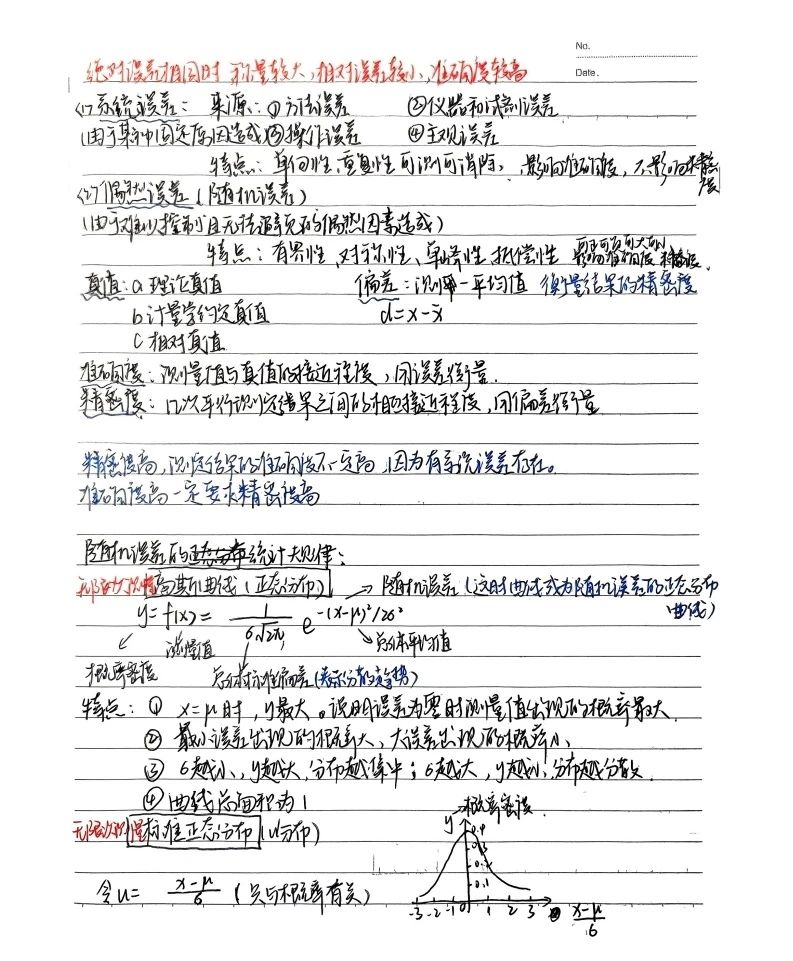 No.
Date.
绝对误差相同时 称量较大,相对误差较小,准确度较高
(1)系统误差: 来源:①方法误差 ②仪器和试剂误差
(由于某种固定原因造成)③操作误差 ④主观误差
特点:单向性、重复性、可测可消除, 影响准确度,不影响精密度
(2)偶然误差(随机误差)
(由于难以控制且无法避免的偶然因素造成)
特点:有界性、对称性、单峰性、抵偿性 影响准确度 精密度.
真值:a 理论真值 偏差:测 - 平均值 衡量结果的精密度
b 计量学约定真值 d=x-x̄
C 相对真值
准确度:测量值与真值的接近程度,用误差衡量.
精密度:几次平行测定结果之间的相互接近程度,用偏差衡量
精密度高,测定结果的准确度不一定高,因为有系统误差存在。
准确度高一定要求精密度高
随机误差的正态分布统计大规律:
无限次测量高斯曲线(正态分布) → 随机误差(这时曲线成为随机误差的正态分布曲线)
y=f(x)= 1/(σ√2π) e^-(x-μ)²/2σ²
测量值 总体平均值
概率密度 总体标准偏差(表示分散趋势)
特点:① x=μ时,y最大。说明误差为零时测量值出现的概率最大.
② 最小误差出现的概率大、大误差出现的概率小.
③ σ越小、y越大,分布越集中;σ越大,y越小,分布越分散.
④ 曲线总面积为1
无限次测量标准正态分布(u分布)
y 概率密度
0.4
0.3
0.1
令u= (x-μ)/σ (只与概率有关)
-3 -2 -1 0 1 2 3 (x-μ)/σ